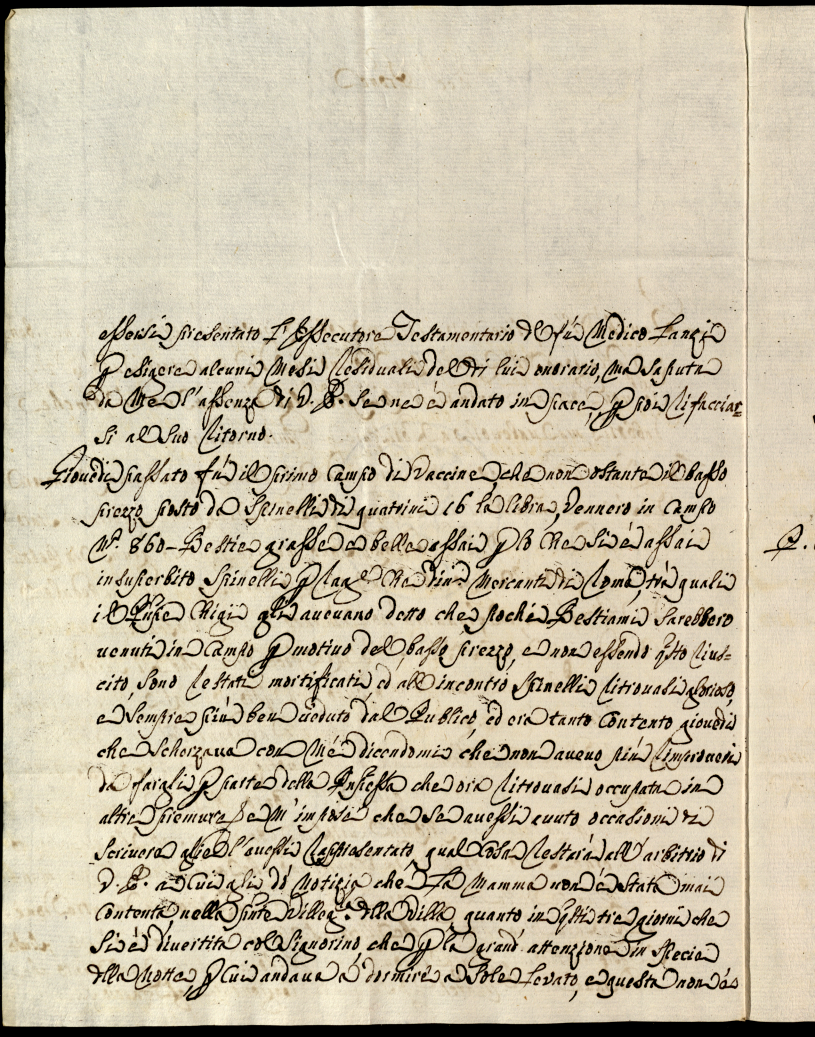 essersi presentato l'Essecutore Testamentario del fù Medico Lanzi
p esigere alcuni Mesi residuali del di lui onorario, ma saputa
da Me l'assenza di V. E. se ne è andato in pace, p poi rifacciar=
si al suo ritorno.
Giovedi passato fù il primo Campo di Vaccine, che non ostante il basso
prezzo posto da Spinelli di quatrini 16 la libra, vennero in Campo
N.º 860 Bestie grasse e belle assai p lo che si è assai
insuperbito Spinelli, p che Mercanti di Roma, trà quali
il Chigi gli avevano detto che poche Bestiami sarebbero
venuti in Campo p motivo del basso prezzo, e non essendo qsto rius=
cito, sono restati mortificati, ed all'incontro Spinelli ritrovasi glorioso,
e sempre più ben veduto dal Publico, ed era tanto contento giovedi
che scherzava con Mè dicendomi che non avevo più rimproveri
da fargli p parte della che ora ritrovasi occupata in
altre premure, e m'impose che se avessi avuto occasioni di
scrivere glie l'avessi rappresentato, qual cosa restarà all'arbitrio di
V. E. a cui gli dò Notizia che la Mamma non è stata mai
contenta nella villeg.ra della Villa, quanto in qsti tre giorni che
si è divertita col Signorino, che p la grand'attenzione in specie
della Notte, p cui andava à dormire a Sole levato, e questa non à